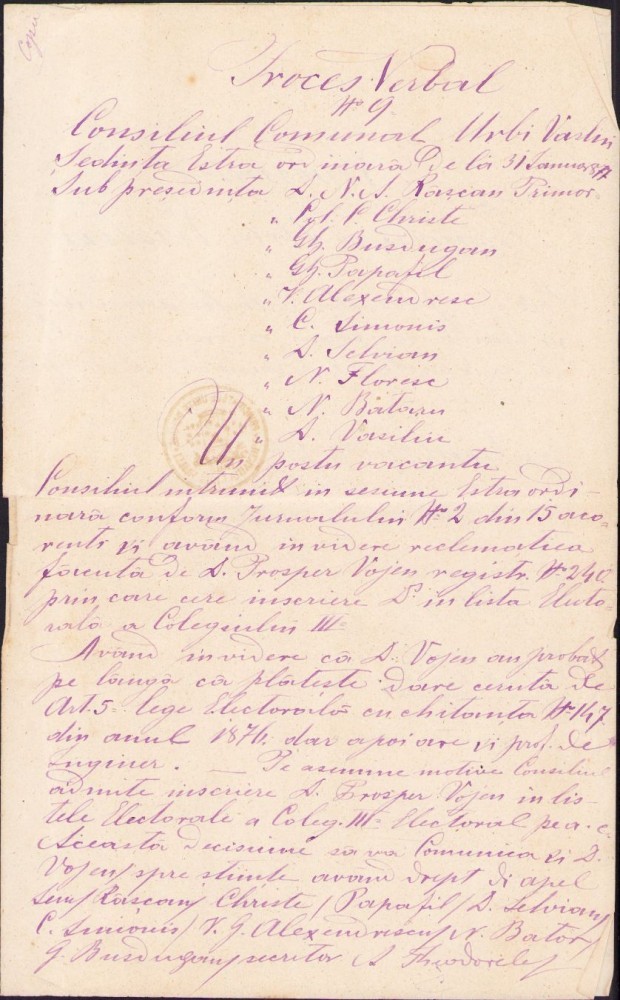 Copie
Proces Verbal
No 9
Consiliul Comunal Urbi Vaslui
Sedinta Estra ordinară de la 31 Januar 877
Sub presedinta D. N. A. Rascan Primor
" P. Christe
" Gh. Busdugan
" Gh. Papafil
" V. Alexendresc
" C. Simonis
" D. Selvian
" N. Floresc
" N. Bataru
" D. Vasiliu
Un postu vacantu
Consiliul intrunit in sesiune Estra ordi-
nară conform Jurnalului No 2 din 15 aco-
renti și avănd in videre reclematiea
făcută de D. Prosper Vojen registr. No 240
prin care cere inscriere D. in lista Electo-
rală a Colegiului III
Avănd in videre că D. Vojen au probat
pe langă că plătește dare ceruta de
Art. 5 lege Electorală cu chitanta No 147
din anul 1876. dar apoi are și prof. de
Enginer. — Pe asemine motive Consiliul
admite inscriere D. Prosper Vojen in lis-
tele Electorale a Coleg. III Electoral pe a. c.
Aceasta decisiune sa va Comunica și D.
Vojen spre stiinte avănd drept di apel
Rascan / Christe / Papafil / D. Selvian /
C. Simionis / V. G. Alexendrescu / N. Bator /
G. Busdugan / secritor A Theodorele /